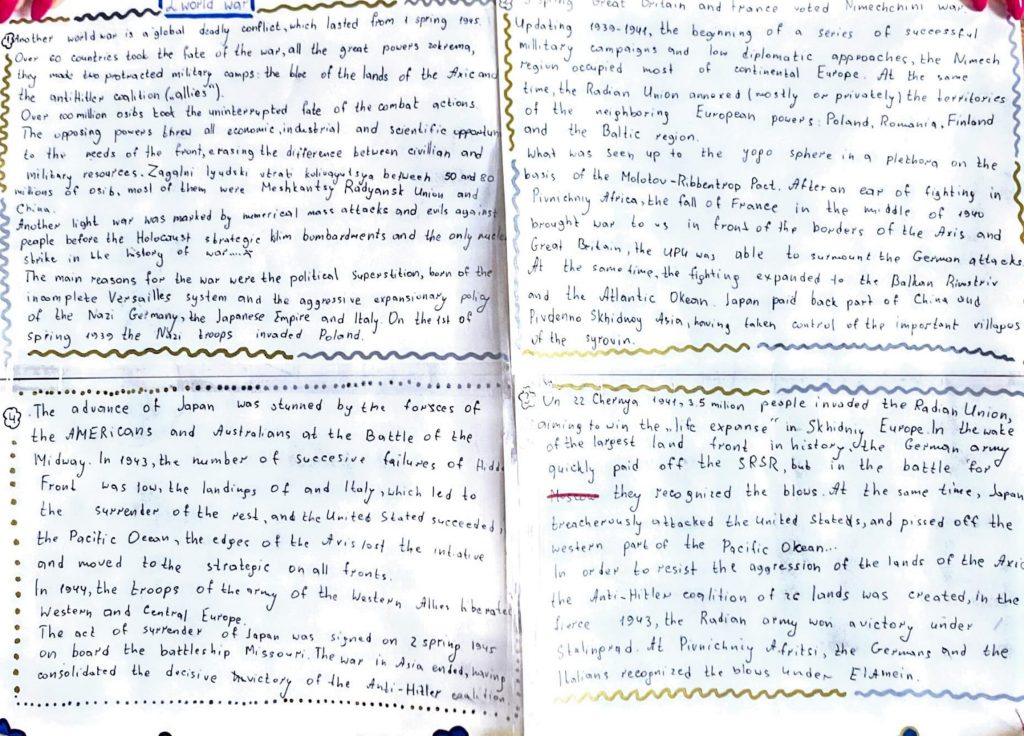 2 world war
1 Another world war is a global deadly conflict, which lasted from 1 spring 1945.
Over 60 countries took the fate of the war, all the great powers zokrema,
they made two protracted military camps: the bloc of the lands of the Axic and
the antiHitler coalition („allies").
Over 100 million osibs took the uninterrupted fate of the combat actions.
The opposing powers threw all economic, industrial and scientific opportun
to the needs of the front, erasing the difference between civillian and
military resources. Zagalni lyudski utrati kolivayutsya between 50 and 80
milions of osib, most of them were Meshkantsy Radyansk Union and
China.
Another light war was marked by numerical mass attacks and evils against
people before the Holocaust strategic klim bombardments and the only nucle
strike in the history of war....
The main reasons for the war were the political superstition, born of the
incomplete Versailles system and the aggressive expansionary policy
of the Nazi Germany, the Japanese Empire and Italy. On the 1st of
spring 1939 the Nazi troops invaded Poland.
3 spring Great Britain and France voted Nimechchini war
Updating 1939-1941, the beginning of a series of successful
millitary campaigns and low diplomatic approaches, the Nimech
region occupied most of continental Europe. At the same
time, the Radian Union annexed (mostly or privately) the territories
of the neighboring European powers: Poland, Romania, Finland
and the Baltic region.
What was seen up to the yogo sphere in a plethora on the
basis of the Molotov-Ribbentrop Pact. After an ear of fighting in
Pivnichniy Africa, the fall of France in the middle of 1940
brought war to us in front of the borders of the Axis and
Great Britain, the UPU was able to surmount the German attacks.
At the same time, the fighting expanded to the Balkan Pivostriv
and the Atlantic Okean. Japan paid back part of China and
Pivdenno Skhidnoy Asia, having taken control of the important villages
of the syrovin.
4 The advance of Japan was stunned by the forsces of
the AMERicans and Australians at the Battle of the
Midway. In 1943, the number of succesive failures of Hidd
Front was low, the landings of and Italy, which led to
the surrender of the rest, and the United Stated succeeded,
the Pacific Ocean, the edges of the Axis lost the intiative
and moved to the strategic on all fronts.
In 1944, the troops of the army of the Western Allies liberated
Western and Central Europe.
The act of surrender of Japan was signed on 2 spring 1945
on board the battleship Missouri. The war in Asia ended, having
consolidated the decisive victory of the Anti-Hitler coalition
3 On 22 Chernya 1941, 3.5 milion people invaded the Radian Union,
aiming to win the „life expanse" in Skhidniy Europe. In the wake
of the largest land front in history, the German army
quickly paid off the SRSR, but in the battle for
they recognized the blows. At the same time, Japan
treacherously attacked the United States, and pissed off the
western part of the Pacific Okean...
In order to resist the aggression of the lands of the Axic
the Anti-Hitler coalition of 26 lands was created, in the
fierce 1943, the Radian army won a victory under
Stalingrad. At Pivnichniy Afritsi, the Germans and the
Italians recognized the blows under ElAmein.